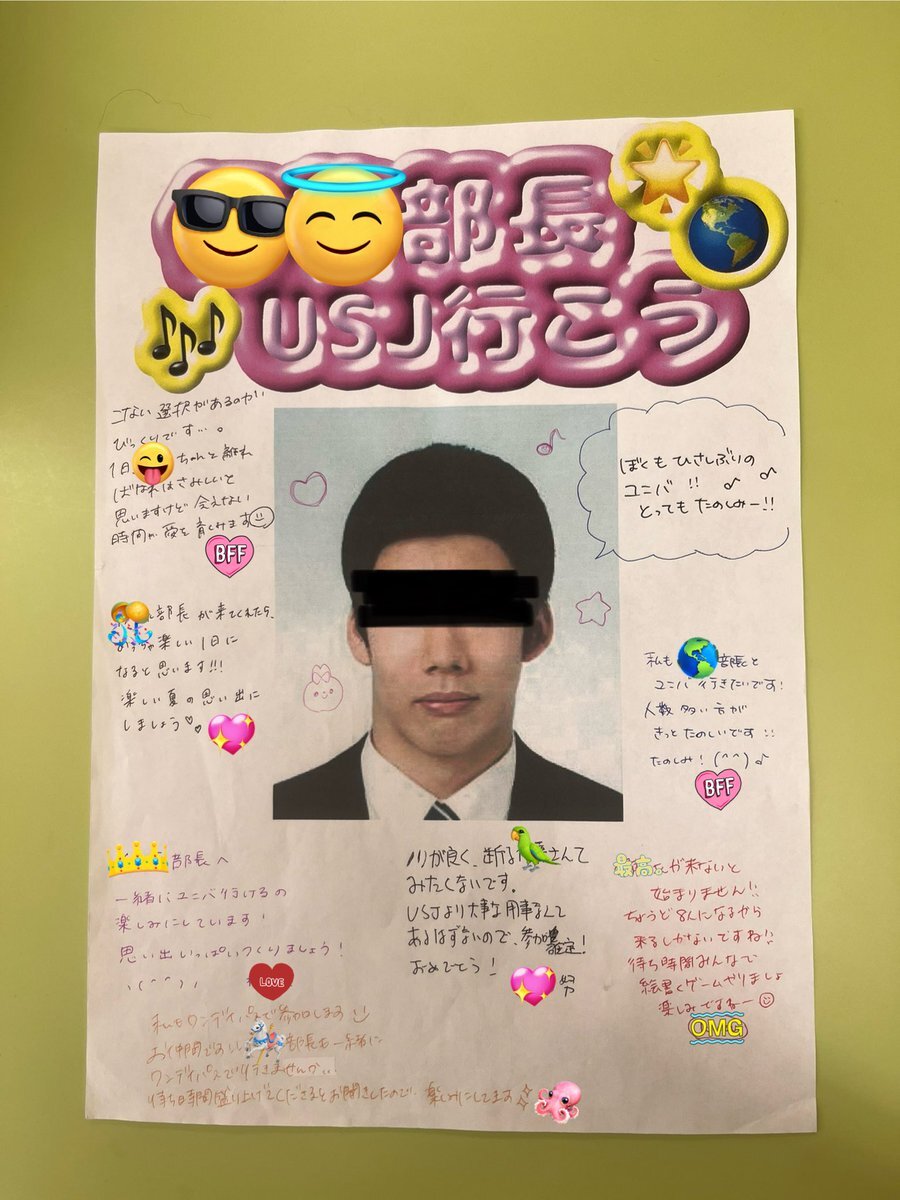 部長
USJ行こう
こない選択があるのが
びっくりです…。
1日、ちゃんと離れ
ばなれはさみしいと
思いますけど会えない
時間が愛を育みます
BFF
ぼくもひさしぶりの
ユニバ!!
とってもたのしみー!!
部長が来てくれたら、
楽しい1日に
なると思います!!!
楽しい夏の思い出に
しましょう
私も部長と
ユニバ行きたいです!
人数多い方が
きっとたのしいです!!
たのしみ!(^^)♪
BFF
部長へ
一緒にユニバ行けるの
楽しみにしています!
思い出いっぱいつくりましょう!
(^^)
LOVE
ノリが良く、断る さんて
みたくないです。
USJより大事な用事なんて
あるはずないので、参加確定!
おめでとう!
が来ないと
始まりません!!
ちょうど8人になるから
来るしかないですね!!
待ち時間みんなで
絵書くゲームやりましょ
楽しみですねー
OMG
私もワンデイパスで参加します
お仲間です 部長も一緒に
ワンデイパスで行きませんか
待ち時間盛り上げてくださるとお聞きしたので、楽しみにしてます